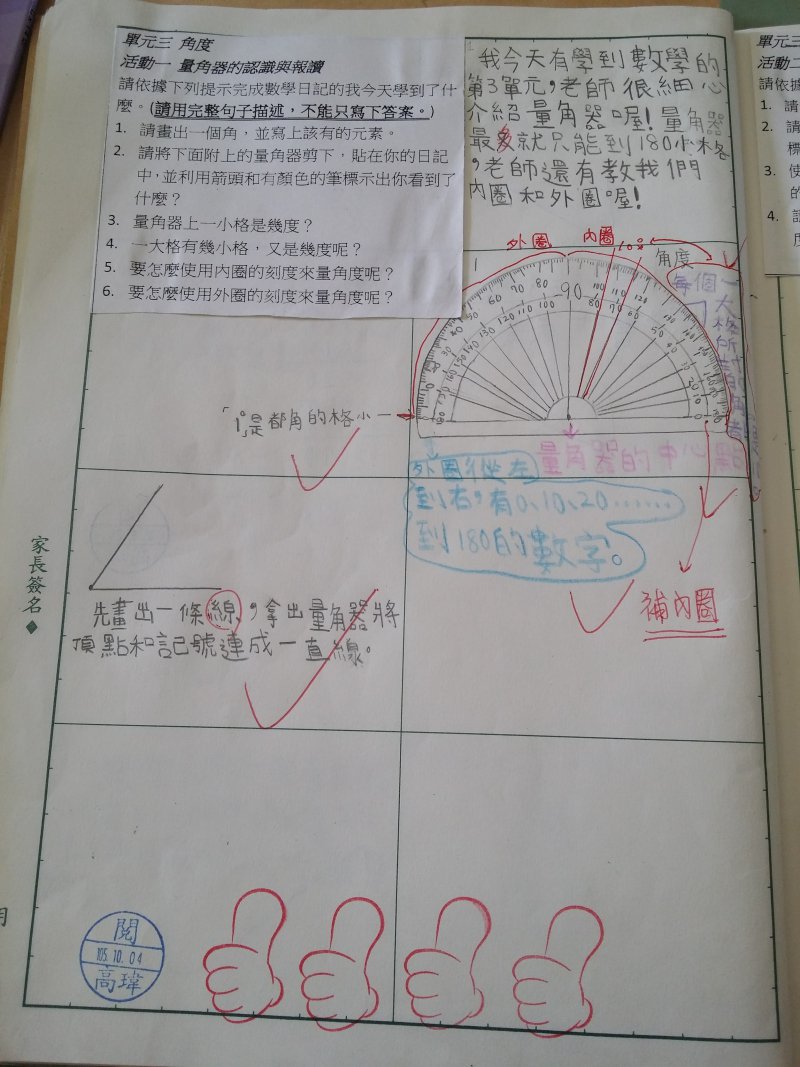 單元三 角度
活動一 量角器的認識與報讀
請依據下列提示完成數學日記的我今天學到了什
麼。(請用完整句子描述，不能只寫下答案。)
1. 請畫出一個角，並寫上該有的元素。
2. 請將下面附上的量角器剪下，貼在你的日記
中，並利用箭頭和有顏色的筆標示出你看到了
什麼？
3. 量角器上一小格是幾度？
4. 一大格有幾小格，又是幾度呢？
5. 要怎麼使用內圈的刻度來量角度呢？
6. 要怎麼使用外圈的刻度來量角度呢？
我今天有學到數學的
第3單元，老師很細心
介紹量角器喔！量角器
最多就只能到180小格
，老師還有教我們
內圈和外圈喔！
外圈
內圈
10°
角度
每個一
大格所
量角器的中心點
一小格的角都是1°
外圈從左
到右，有0、10、20……
到180的數字。
補內圈
先畫出一條線，拿出量角器將
頂點和記號連成一直線。
家長簽名◆
閱
105.10.04
高瑋
單元三
活動二
請依據
1. 請
2. 請
標
3. 使
的
4. 請
度
月